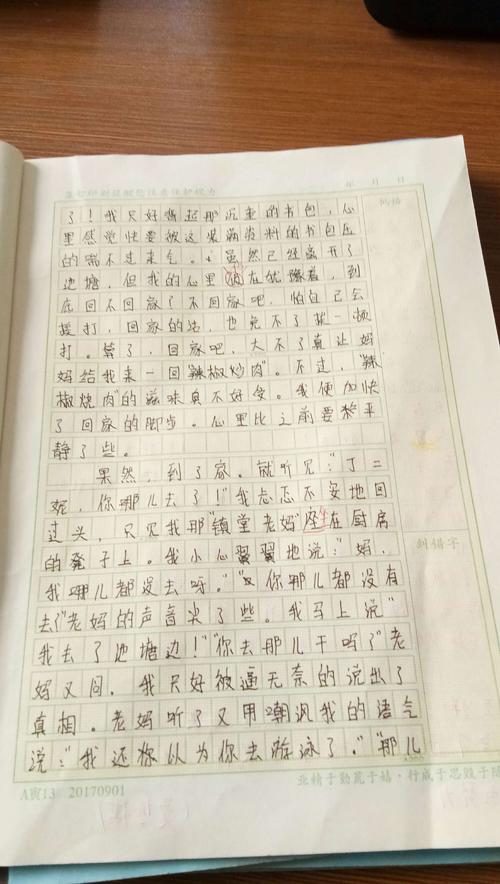 年 月 日
了！我只好背起那沉重的书包，心
里感觉快要被这装满资料的书包压
的喘不过来气。虽然已经离开了
池塘，但我的心里 在犹豫着，到
底回不回家了不回家吧，怕自己会
挨打，回家的话，也免不了挨一顿
打。算了，回家吧，大不了真让妈
妈给我来一回"辣椒炒肉"。不过，"辣
椒烧肉"的滋味真不好受。我便加快
了回家的脚步。心里比之前要 平
静了些。
果然，到了家。就听见："丁二
妮，你哪儿去了！"我忐忑不安地回
过头，只见我那"镇堂老妈"座在厨房
的凳子上。我小心翼翼地说："妈，
我哪儿都没去呀。""你哪儿都没有
去？"老妈的声音尖了些。我马上说"
我去了池塘边！""你去那儿干吗？"老
妈又问，我只好被逼无奈的说出了
真相。老妈听了又用嘲讽我的语气
说："我还你以为你去游泳了。""那儿
纠错字
业精于勤荒于嬉·行成于思毁于随
A寅13 20170901